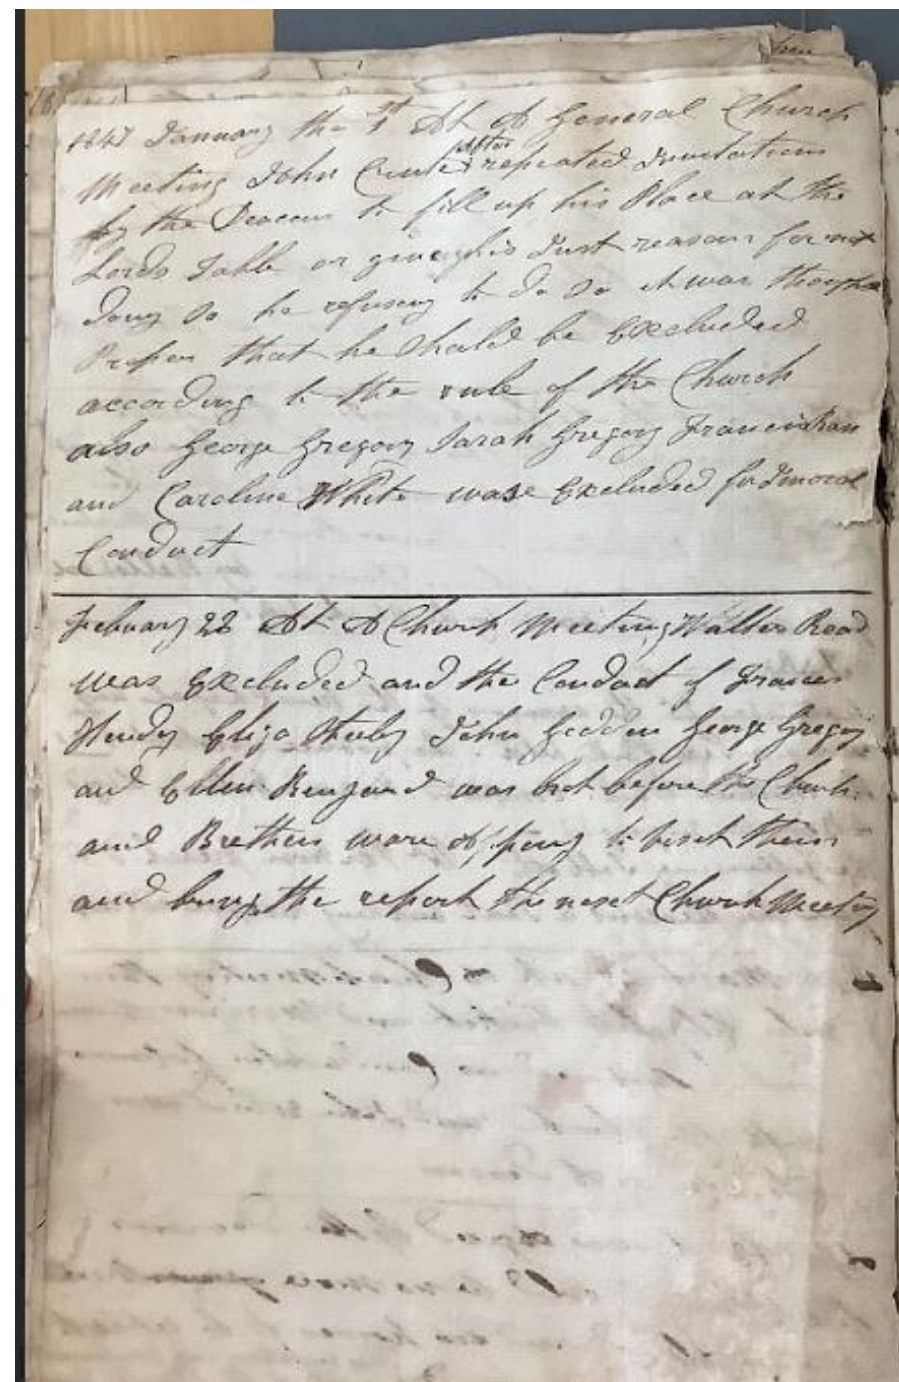 1847 January the 1st At A General Church
Meeting John Cunte after repeated Invitations
by the Deacons to fill up his Place at the
Lords Table or give his Just reason for not
doing so he refusing to do so it was thought
Proper that he Shold be Excluded
according to the rule of the Church
also George Gregory Sarah Gregory Francis
and Caroline White ware Excluded for Imoral
Conduct
February 22 At A Church Meeting Walter Read
was Excluded and the Conduct of Frances
Hendy Eliza John Gedden George Gregory
and Ellen was brot before the Church
and Brethren ware appony to viset them
and bring the report the next Church Meeting